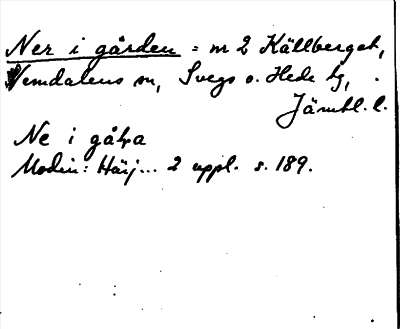 Ner i gården = nr 2 Källberget,
Vemdalens sn, Svegs o. Hede tg,
Jämtl. l.
Ne i gåḷa
Modin: Härj... 2 uppl. s. 189.